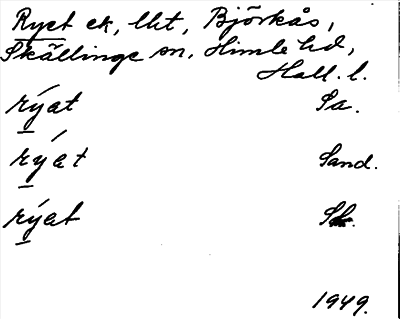 Ryet ek, lht, Björkås,
Skällinge sn, Himle hd,
Hall. l.
rýat Sa.
rýet Sand.
rýet
1949.